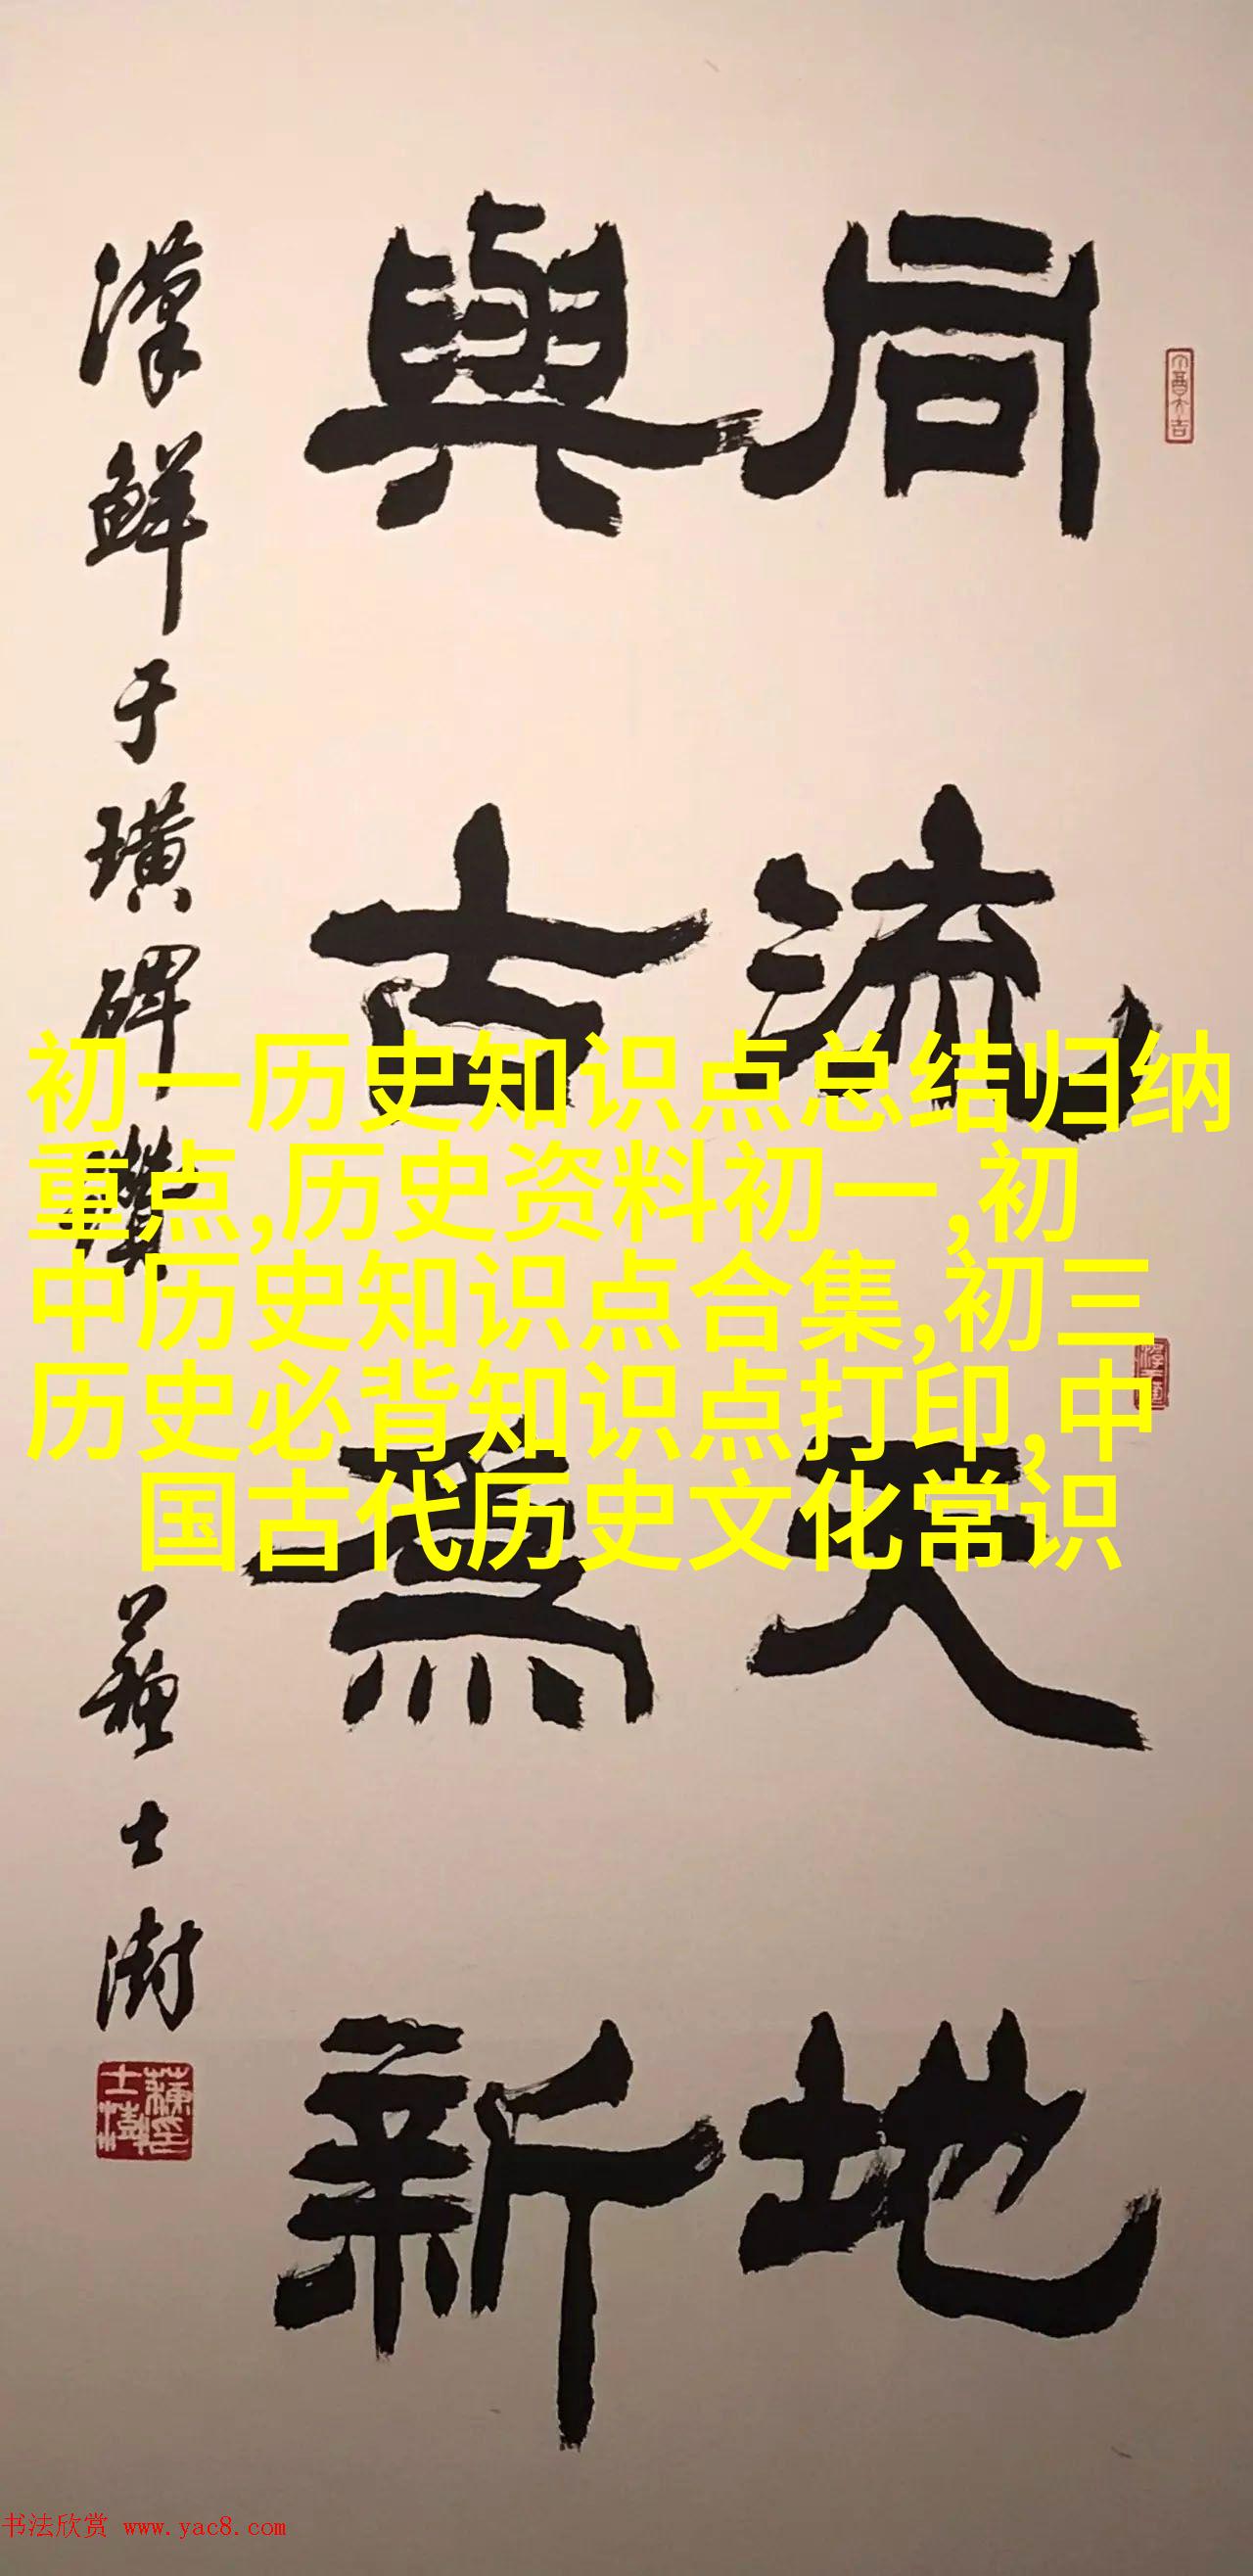 同流天地
與古為新
漢鮮于璜碑贊
蘇士澍
初一历史知识点总结归纳
重点,历史资料初一,初
中历史知识点合集,初三
历史必背知识点打印,中
国古代历史文化常识
书法欣赏 www.yac8.com